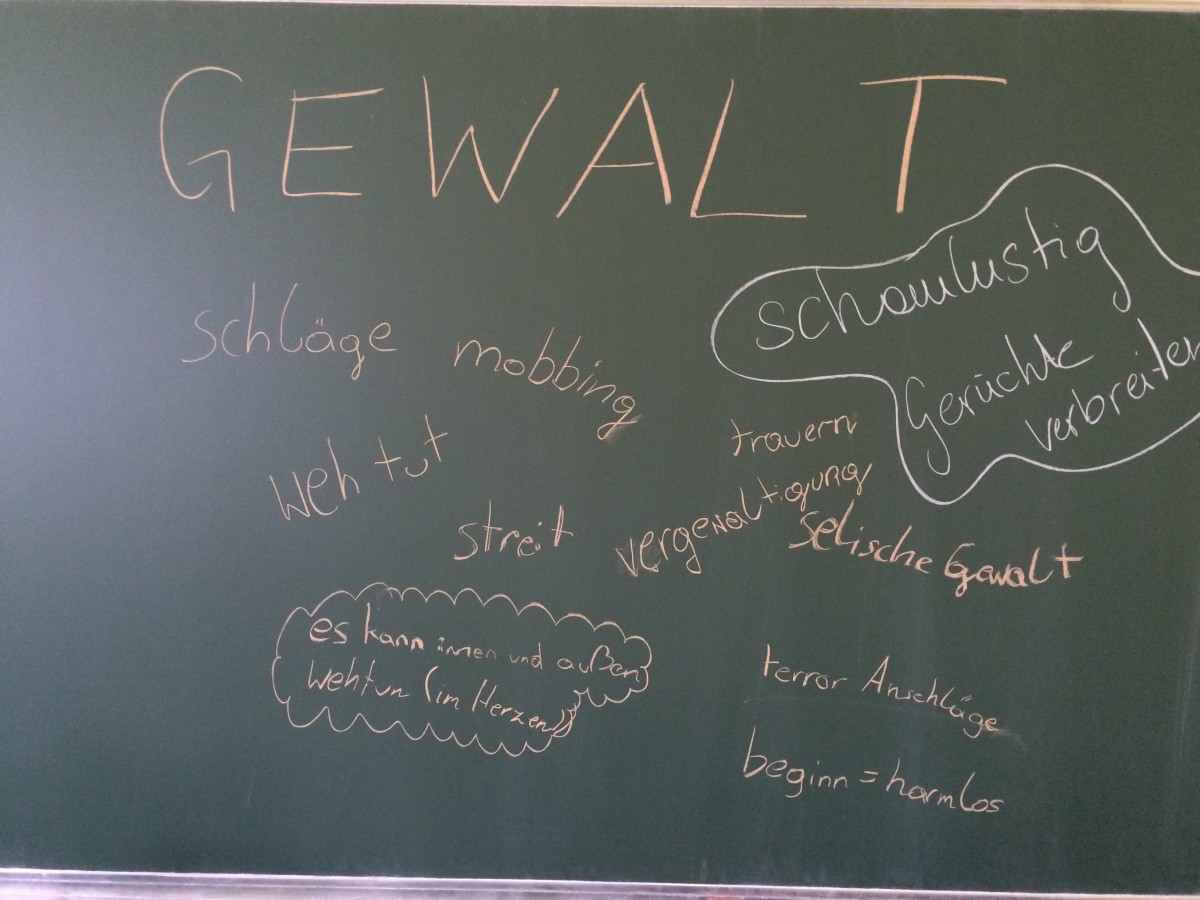 GEWALT
schaulustig
Gerüchte
verbreiten
schläge
mobbing
weh tut
trauern
vergewaltigung
streit
selische Gewalt
es kann innen und außen
wehtun (im Herzen)
terror Anschläge
beginn = harmlos